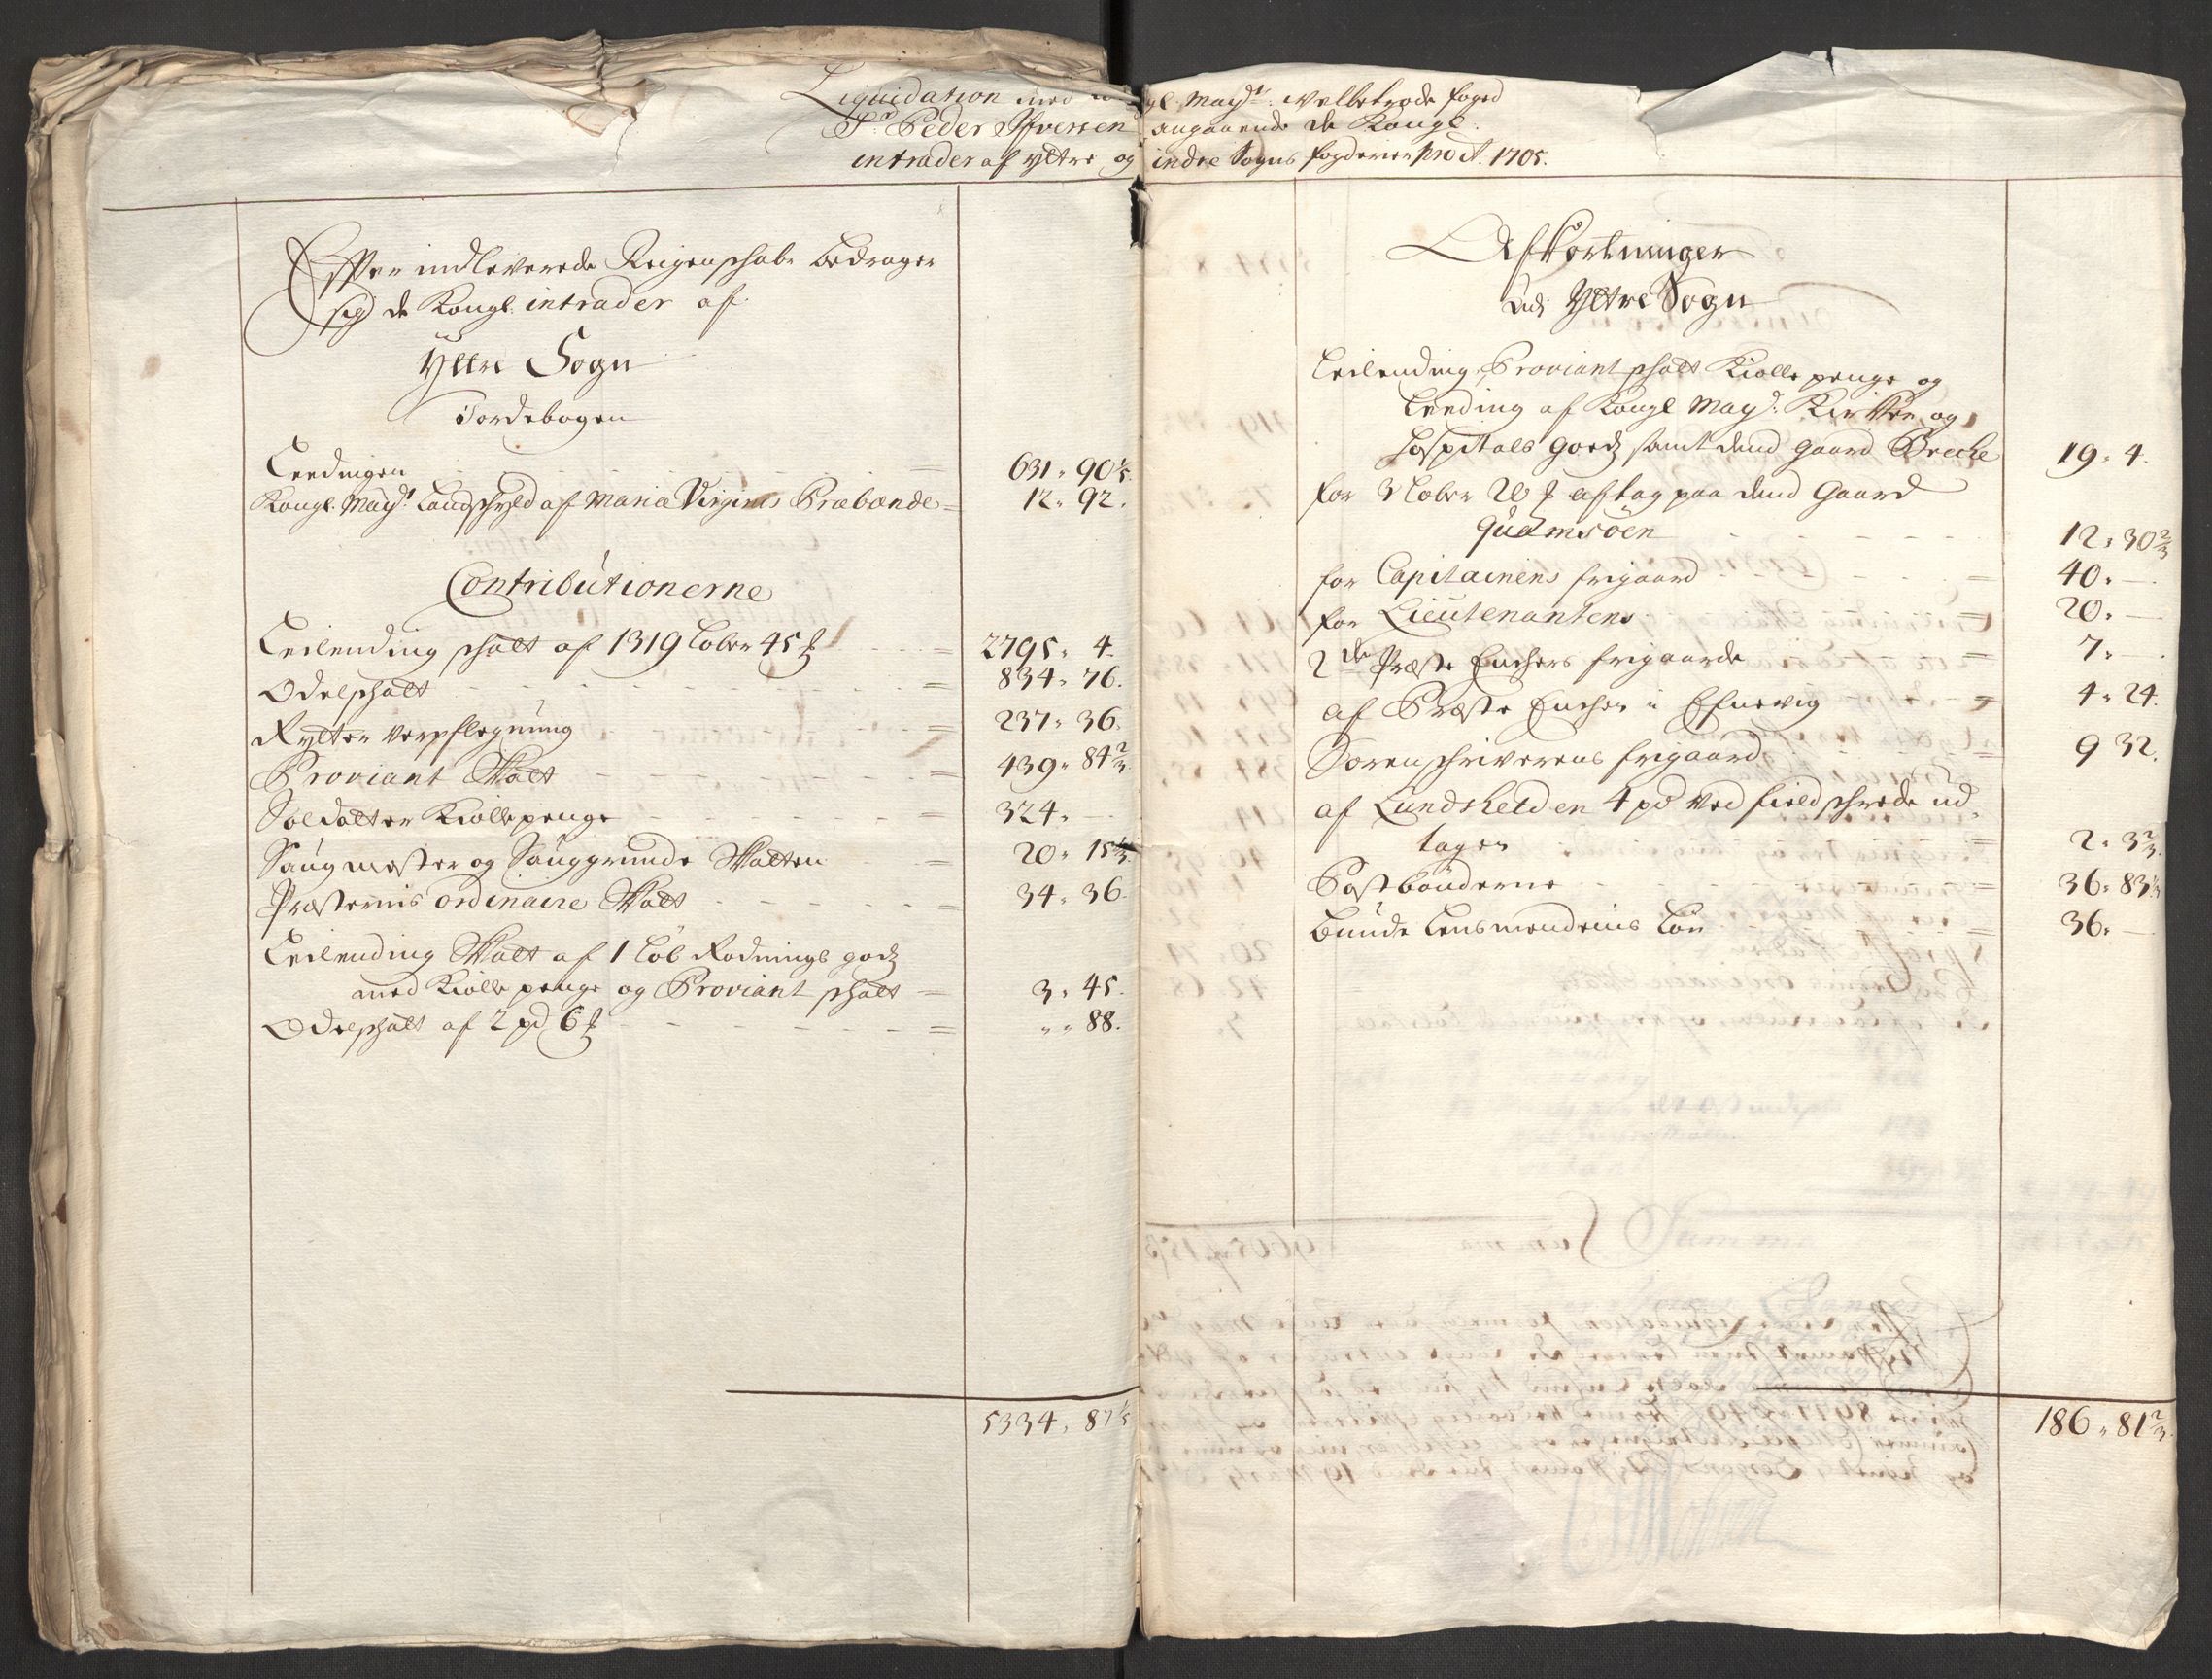 Liquidation med Kongl. Mayts. velbetrode foged
Sr. Peder Ifversen angaaende de Kongl.
intrader af yttre og indre Sogns fogderier pro Ao. 1705.
Effter indleverede Reigenschabr bedrager
sig de Kongl. intrader af
Yttre Sogn
Jordebogen
Leedingen = 631 „ 90 1/5
Kongl. Mayts. Landschyld af Maria Virginis Præbende = 12 „ 92.
Contributionerne
Leilending schatt af 1319 Løber 45 ℔ = 2795 „ 4.
Odelschatt = 834 „ 76.
Rytter verpflegning = 237 „ 36.
Proviant Skatt = 439 „ 84 2/3
Soldatter Kiolle penge = 324 „ —
Saugmester og Sauggrunde Skatten = 20 „ 15 1/3
Præsternis ordinaire Skatt = 34 „ 36.
Leilending Skatt af 1 Løb Rødnings godz
med Kiolle penge og Proviant schatt = 3 „ 45.
Odelschatt af 2 pd 6 ℔ = „ „ 88.
5334 „ 87 1/5
Afkortninger
Udj Yttre Sogn
Leilending, Proviant schatt Kiolle penge og
Leeding af Kongl. Mayts. Kircken og
Hospitals Goedz samt dend gaard Breche 19 „ 4.
for 3 Løber 20 ℔ aftag paa dend Gaard
Qualmsøen 12 „ 30 2/3
for Capitainens frigaard = 40 „ —
for Lieutenantens = 20 „ —
2de Præste Enchers frigaarde = 7 „ —
af Præste Enchen i Efnevig = 4 „ 24.
Sorenschriverens frigaard = 9 32.
af Lundsletden 4 pd ved field schrede ud
tagen = 2 „ 3 2/3.
Postbønderne = 36 „ 83 1/3
Bunde Lensmendenis Løn = 36 „ —
186 „ 81 2/3.